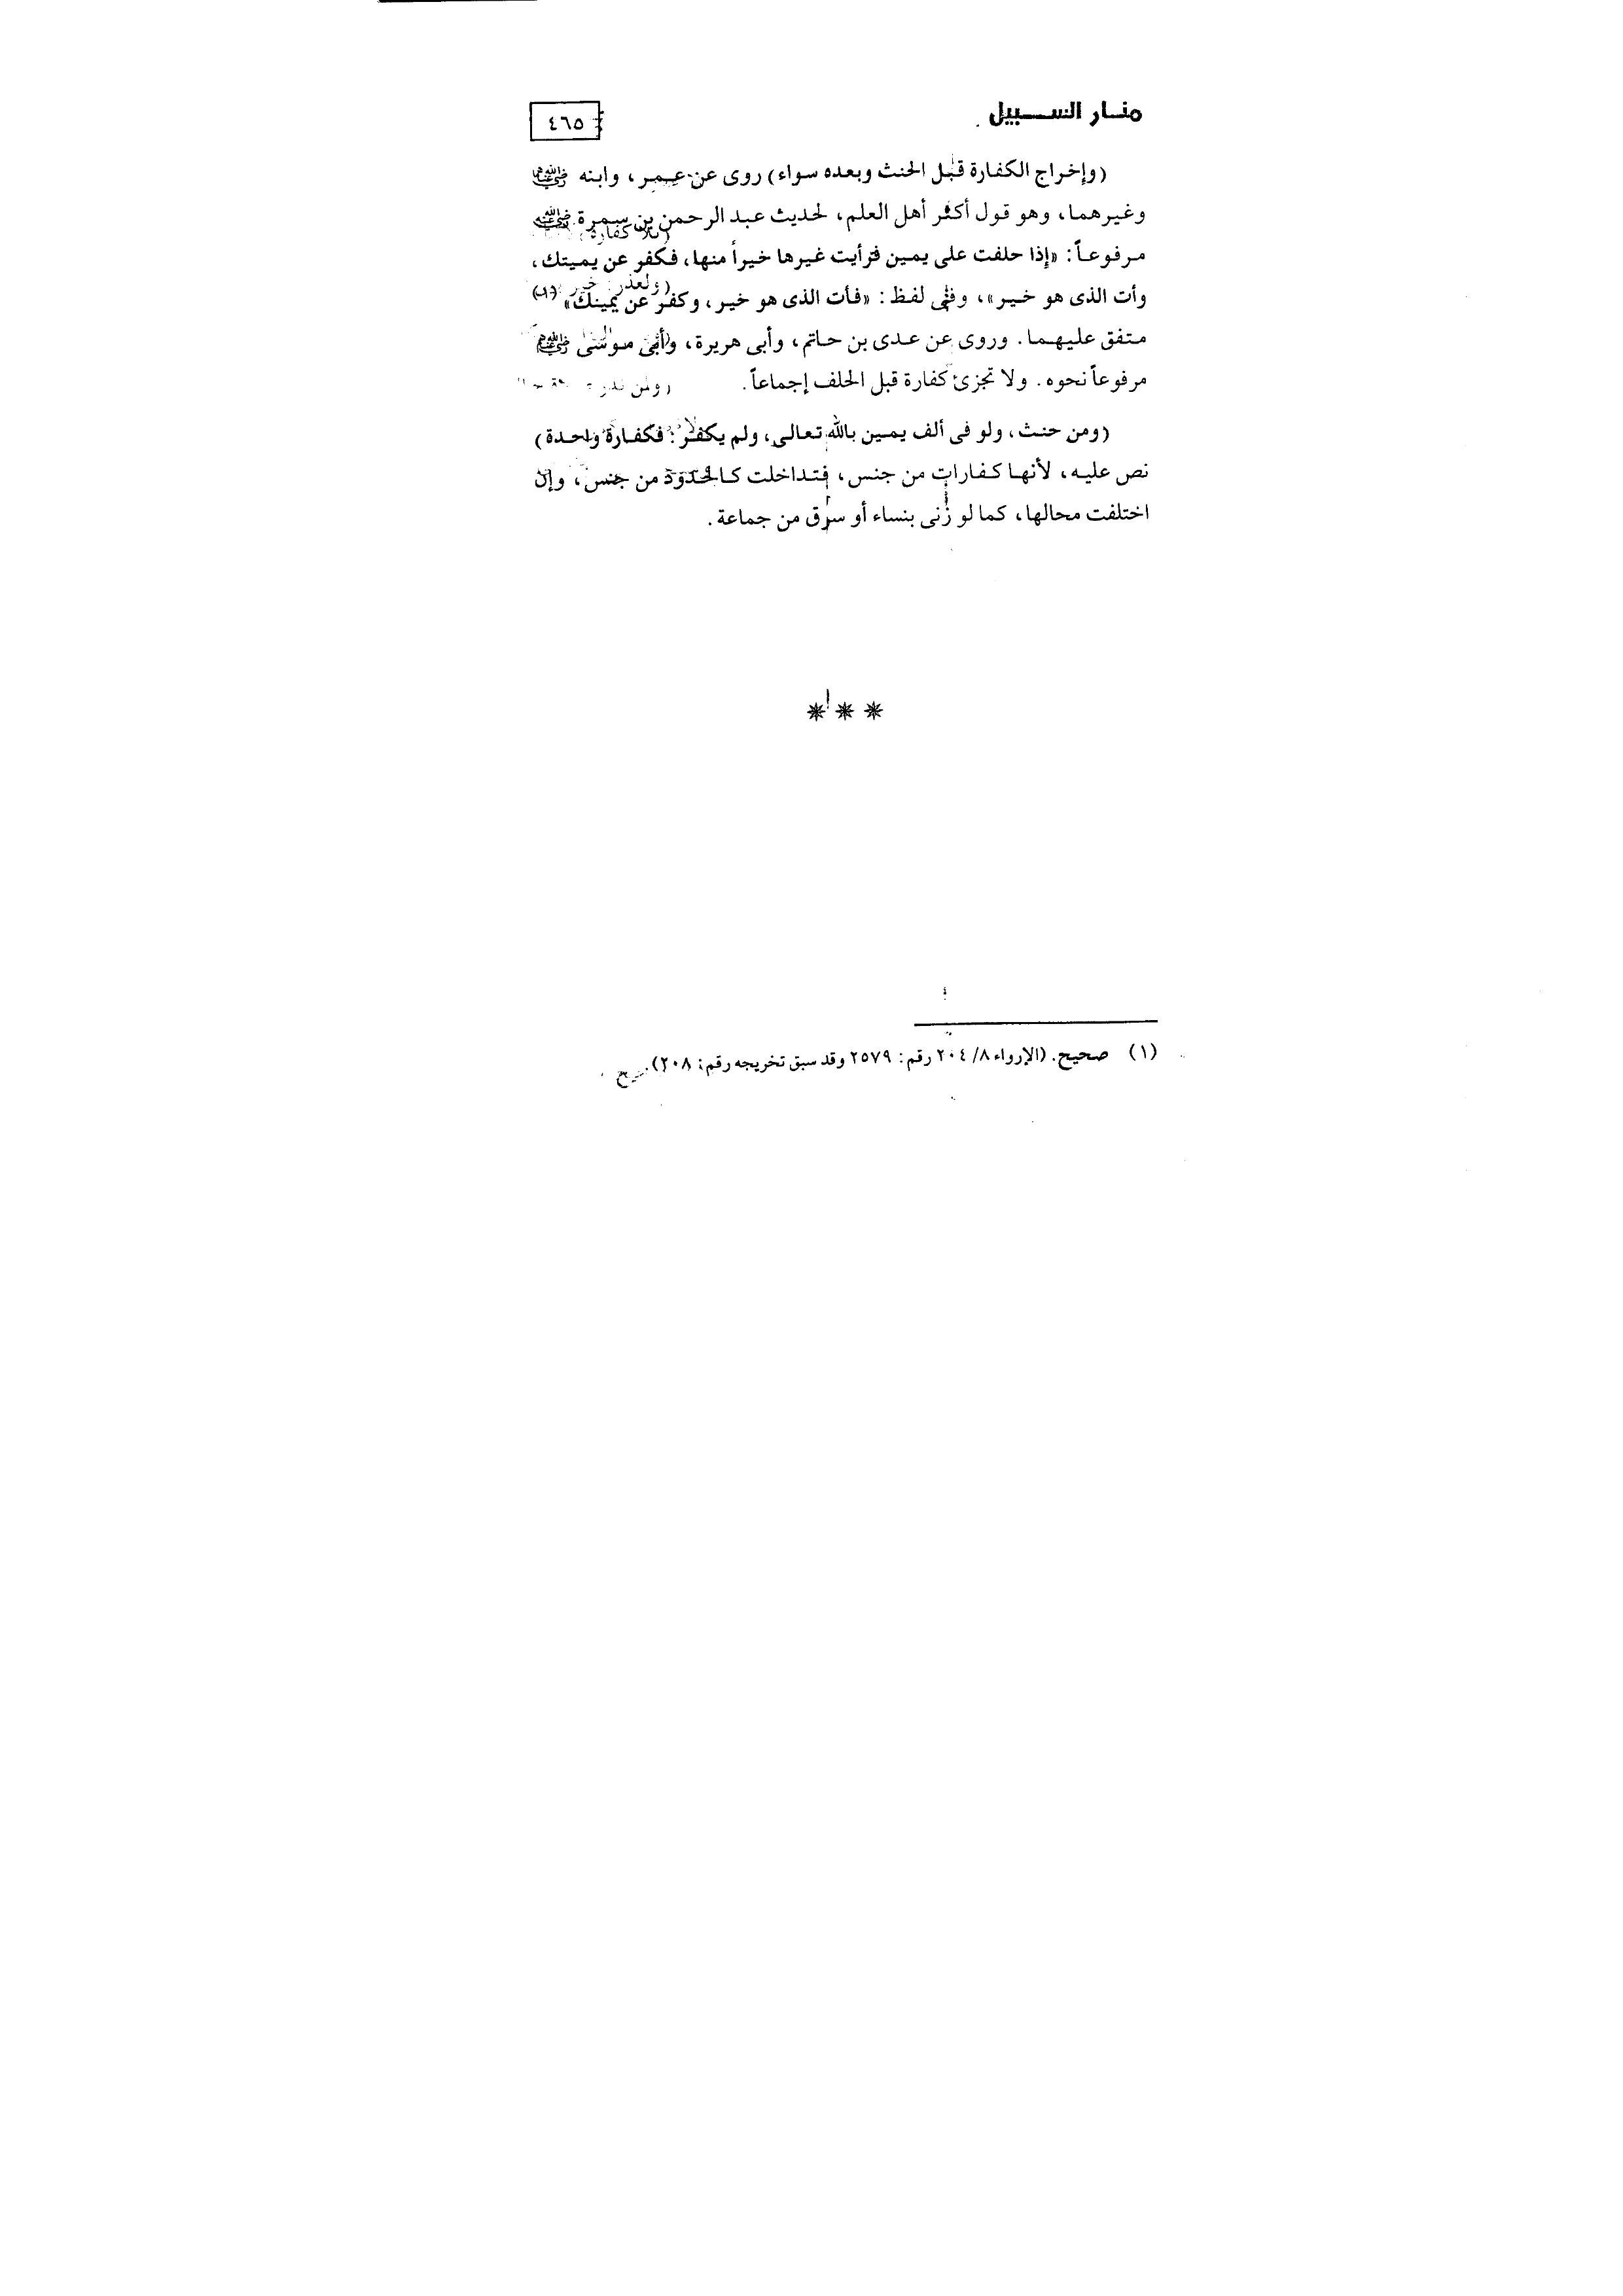 منار السبيل
٤٦٥
(وإخراج الكفارة قبل الحنث وبعده سواء) روى عن عمر، وابنه رضي الله عنهما
وغيرهما، وهو قول أكثر أهل العلم، لحديث عبد الرحمن بن سمرة رضي الله عنه
مرفوعاً: «إذا حلفت على يمين فرأيت غيرها خيراً منها، فكفر عن يمينك،
وأت الذى هو خير»، وفى لفظ: «فأت الذى هو خير، وكفر عن يمينك» (١)
متفق عليهما. وروى عن عدى بن حاتم، وأبى هريرة، وأبى موسى رضي الله عنهم
مرفوعاً نحوه. ولا تجزئ كفارة قبل الحلف إجماعاً.
(ومن حنث، ولو فى ألف يمين بالله تعالى، ولم يكفر: فكفارة واحدة)
نص عليه، لأنها كفارات من جنس، فتداخلت كالحدود من جنس، وإن
اختلفت محالها، كما لو زنى بنساء أو سرق من جماعة.
* * *
(١) صحيح. (الإرواء ٨/ ٢٠٤ رقم: ٢٥٧٩ وقد سبق تخريجه رقم: ٢٠٨).